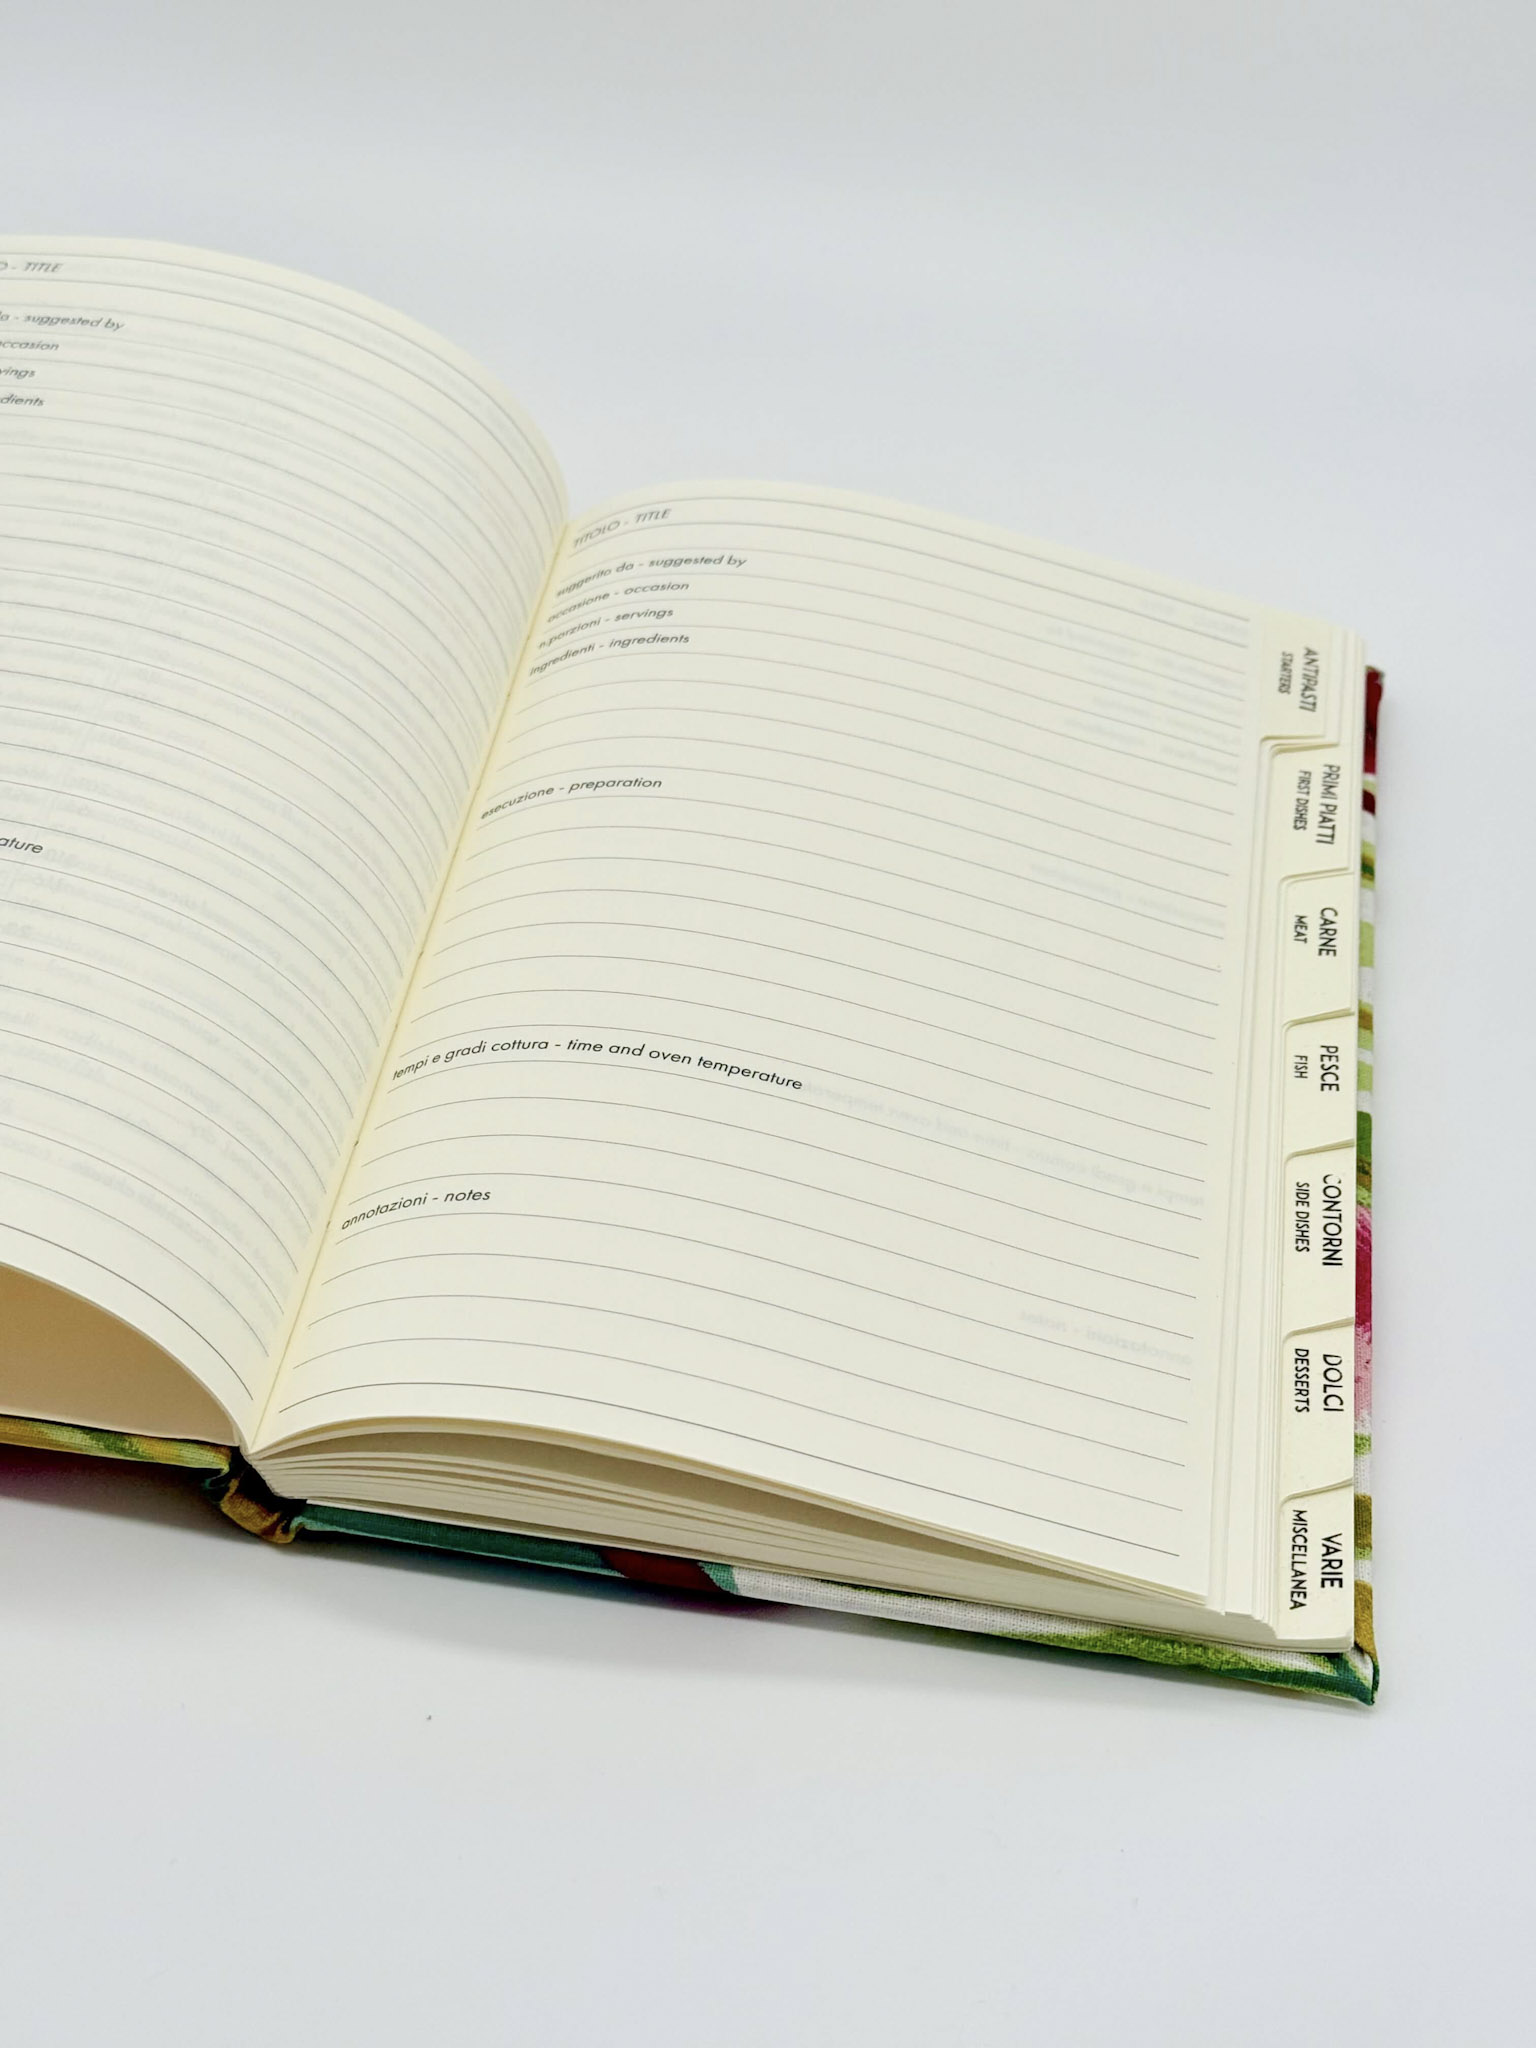 TITLE
suggested by
occasion
TITOLO - TITLE
suggerito da - suggested by
occasione - occasion
n.porzioni - servings
ingredienti - ingredients
esecuzione - preparation
tempi e gradi cottura - time and oven temperature
annotazioni - notes
ANTIPASTI
STARTERS
PRIMI PIATTI
FIRST DISHES
CARNE
MEAT
PESCE
FISH
CONTORNI
SIDE DISHES
DOLCI
DESSERTS
VARIE
MISCELLANEA